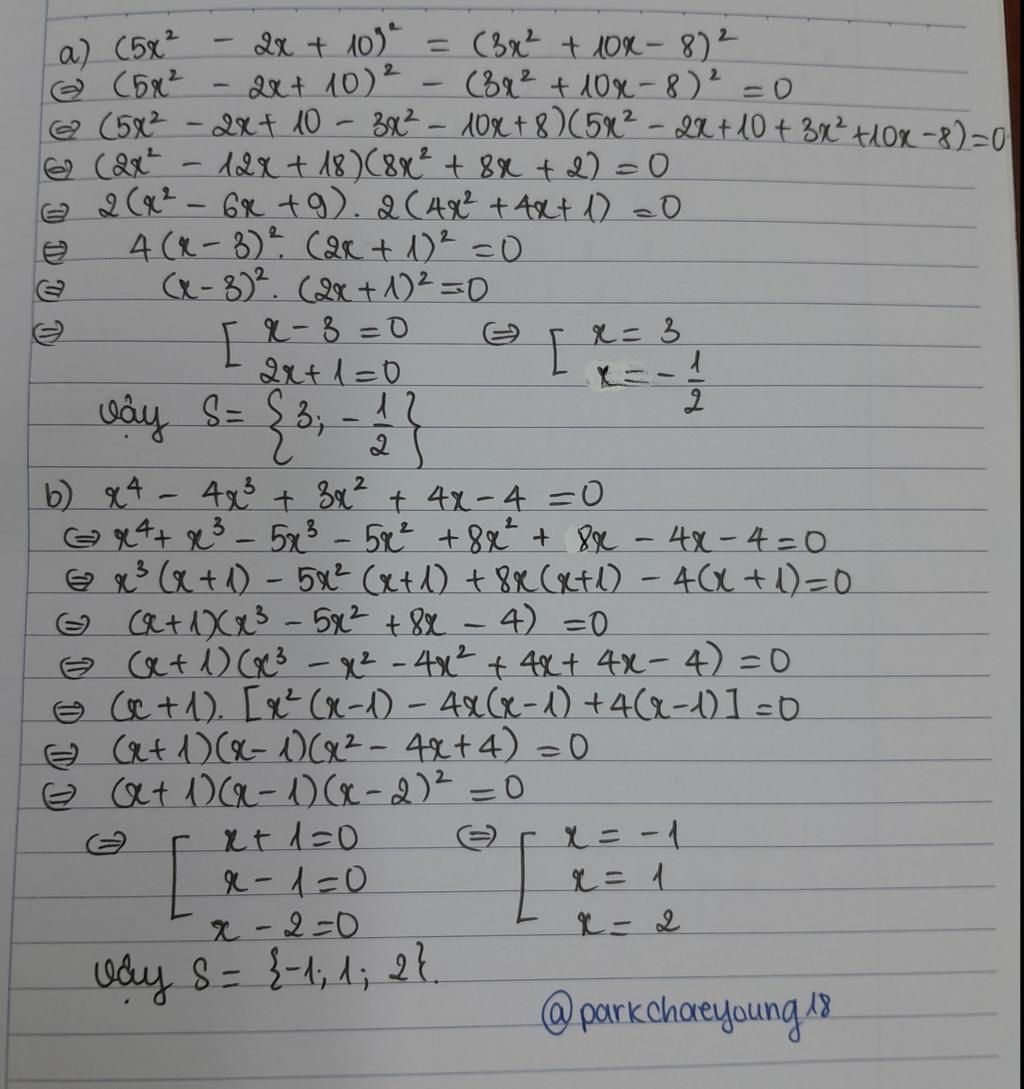 a) (5x² - 2x + 10)² = (3x² + 10x - 8)²
⇔ (5x² - 2x + 10)² - (3x² + 10x - 8)² = 0
⇔ (5x² - 2x + 10 - 3x² - 10x + 8)(5x² - 2x + 10 + 3x² + 10x - 8) = 0
⇔ (2x² - 12x + 18)(8x² + 8x + 2) = 0
⇔ 2(x² - 6x + 9). 2(4x² + 4x + 1) = 0
⇔ 4(x - 3)². (2x + 1)² = 0
⇔ (x - 3)². (2x + 1)² = 0
⇔ [ x - 3 = 0 ⇔ [ x = 3
2x + 1 = 0 x = -1/2
Vậy S = {3; -1/2}
b) x⁴ - 4x³ + 3x² + 4x - 4 = 0
⇔ x⁴ + x³ - 5x³ - 5x² + 8x² + 8x - 4x - 4 = 0
⇔ x³(x + 1) - 5x²(x + 1) + 8x(x + 1) - 4(x + 1) = 0
⇔ (x + 1)(x³ - 5x² + 8x - 4) = 0
⇔ (x + 1)(x³ - x² - 4x² + 4x + 4x - 4) = 0
⇔ (x + 1). [x²(x - 1) - 4x(x - 1) + 4(x - 1)] = 0
⇔ (x + 1)(x - 1)(x² - 4x + 4) = 0
⇔ (x + 1)(x - 1)(x - 2)² = 0
⇔ [ x + 1 = 0 ⇔ [ x = -1
x - 1 = 0 x = 1
x - 2 = 0 x = 2
Vậy S = {-1; 1; 2}.
@parkchaeyoung18